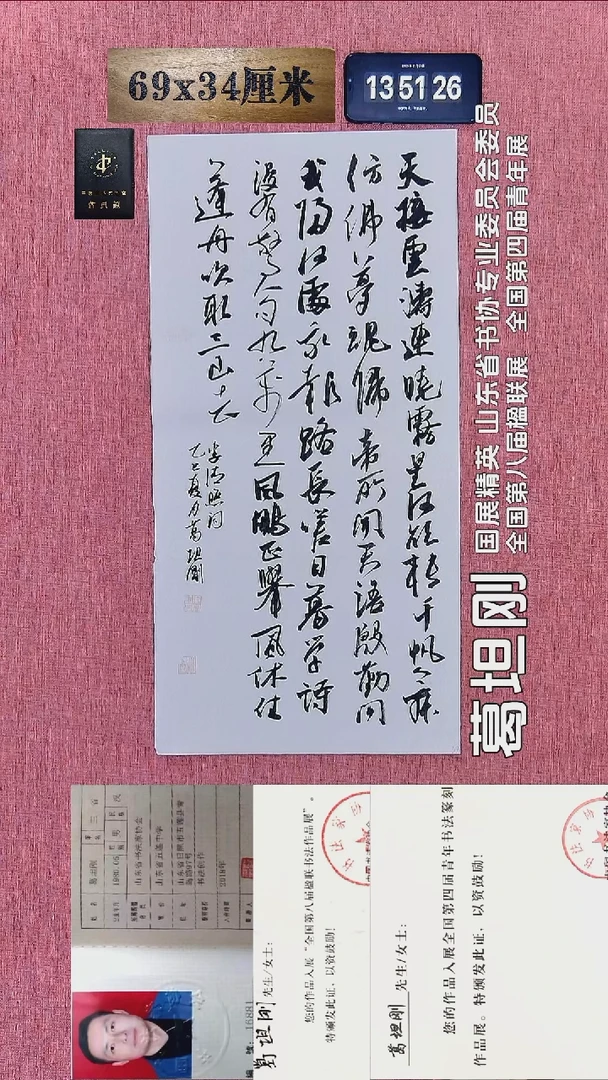 69x34厘米
13 51 26
天接雲濤連曉霧星河欲轉千帆舞
仿佛夢魂歸帝所聞天語殷勤問
我歸何處我報路長嗟日暮學詩
謾有驚人句九萬里風鵬正舉風休住
蓬舟吹取三山去
李清照詞
乙巳夏月葛坦剛
葛坦刚
国展精英 山东省书协专业委员会委员
全国第八届楹联展 全国第四届青年展
山东省书法家协会
山东省五莲中学
书法创作
2018年
葛坦刚 先生/女士：
您的作品入展"全国第八届楹联书法作品展"。
特颁发此证，以资鼓励！
葛坦刚 先生/女士：
您的作品入展全国第四届青年书法篆刻
作品展。特颁发此证，以资鼓励！